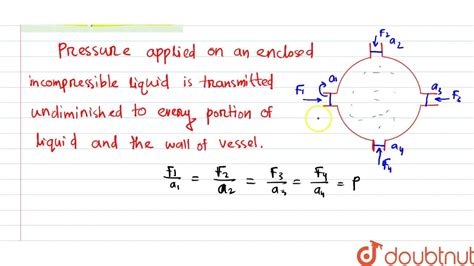 Pressure applied on an enclosed
incompressible liquid is transmitted
undiminished to every portion of
liquid and the wall of vessel.
F1/a1 = F2/a2 = F3/a3 = F4/a4 = P
F2
a2
a1
F1
a3
F3
a4
F4
doubtnut